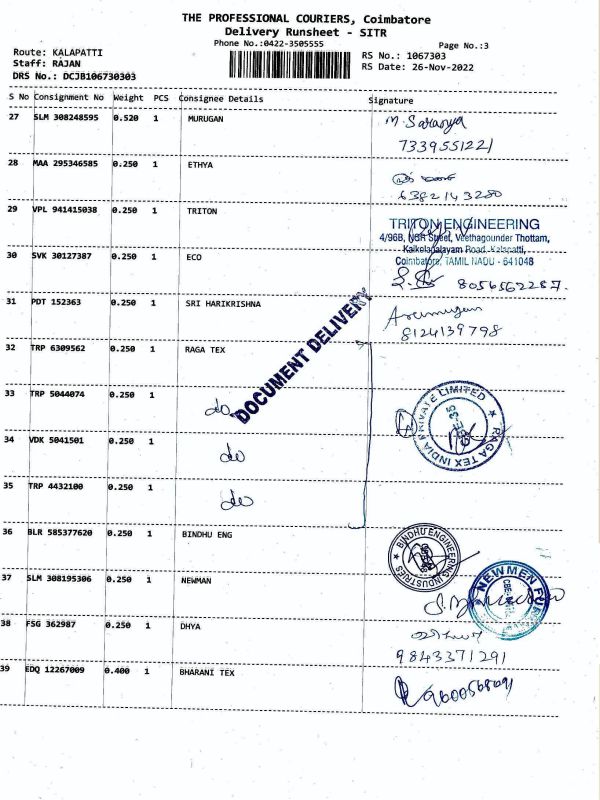 THE PROFESSIONAL COURIERS, Coimbatore
Delivery Runsheet - SITR
Phone No.:0422-3505555
Page No.:3
Route: KALAPATTI
RS No.: 1067303
Staff: RAJAN
RS Date: 26-Nov-2022
DRS No.: DCJB106730303
S No Consignment No Weight PCS Consignee Details Signature
27 SLM 308248595 0.520 1 MURUGAN M. Saranya
7339551221
28 MAA 295346585 0.250 1 ETHYA
6382143280
29 VPL 941415038 0.250 1 TRITON
TRITON ENGINEERING
4/96B, NGR Street, Veethagounder Thottam,
Kaikolapalayam Road, Kalapatti,
Coimbatore, TAMIL NADU - 641048
30 SVK 30127387 0.250 1 ECO
8056562287.
31 PDT 152363 0.250 1 SRI HARIKRISHNA Arumugam
8124139798
DOCUMENT DELIVERY
32 TRP 6309562 0.250 1 RAGA TEX
33 TRP 5044074 0.250 1 do
RAGA TEX INDIA PRIVATE LIMITED
CBE-35
34 VDK 5041501 0.250 1 do
35 TRP 4432100 0.250 1 do
36 BLR 585377620 0.250 1 BINDHU ENG
BINDHU ENGINEERING INDUSTRIES
37 SLM 308195306 0.250 1 NEWMAN
NEWMEN
38 FSG 362987 0.250 1 DHYA
9843371291
39 EDQ 12267009 0.400 1 BHARANI TEX